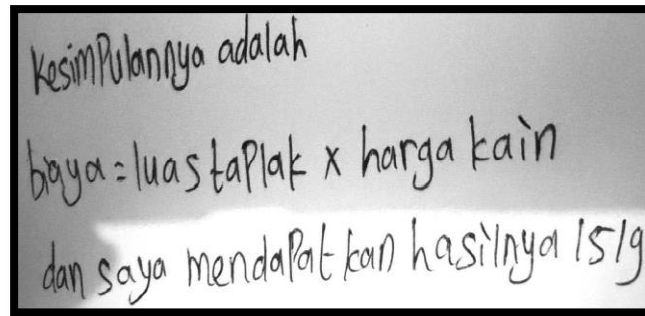 Kesimpulannya adalah
biaya = luas taplak x harga kain
dan saya mendapat kan hasilnya 1519